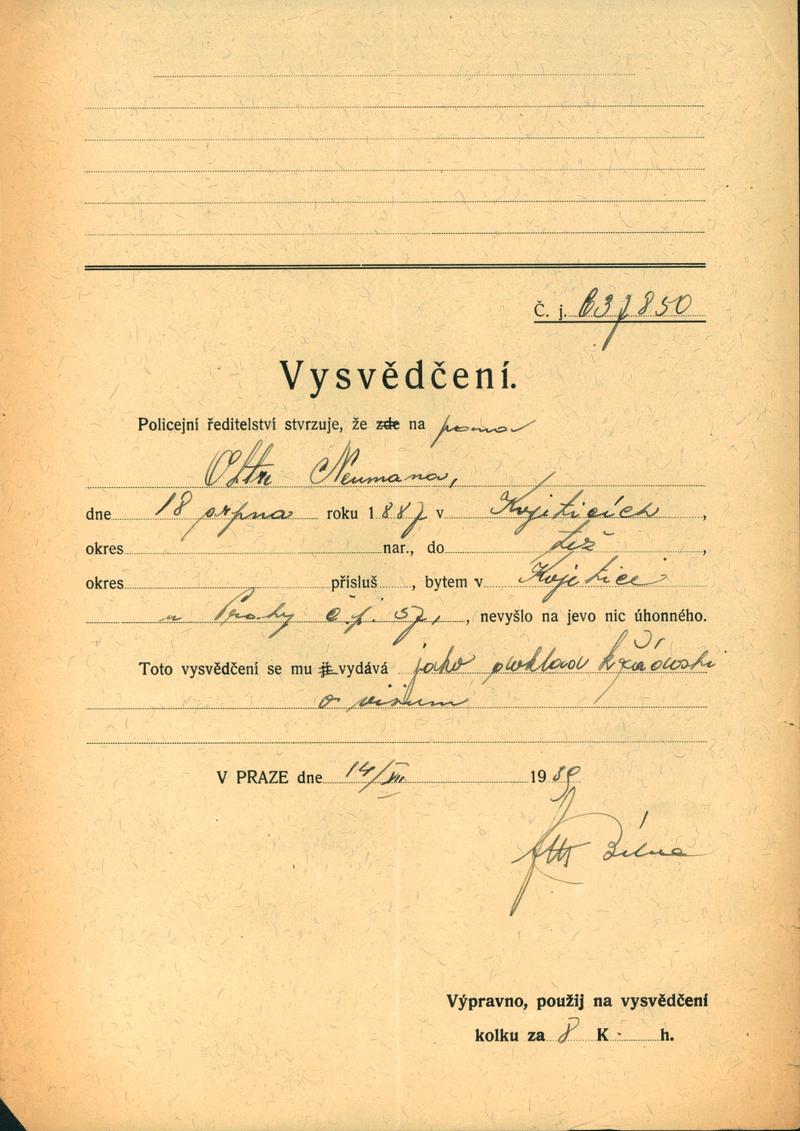 Č. j. 637850
Vysvědčení.
Policejní ředitelství stvrzuje, že zde na
Neumana,
dne 18 srpna roku 1887 v Kojeticích,
okres nar., do též,
okres přísluš, bytem v Kojetice
u Prahy č.p. 57, , nevyšlo na jevo nic úhonného.
Toto vysvědčení se mu vydává jako doklad k žádosti
o visum
V PRAZE dne 14/VII 1939
Výpravno, použij na vysvědčení
kolku za 8 K - h.